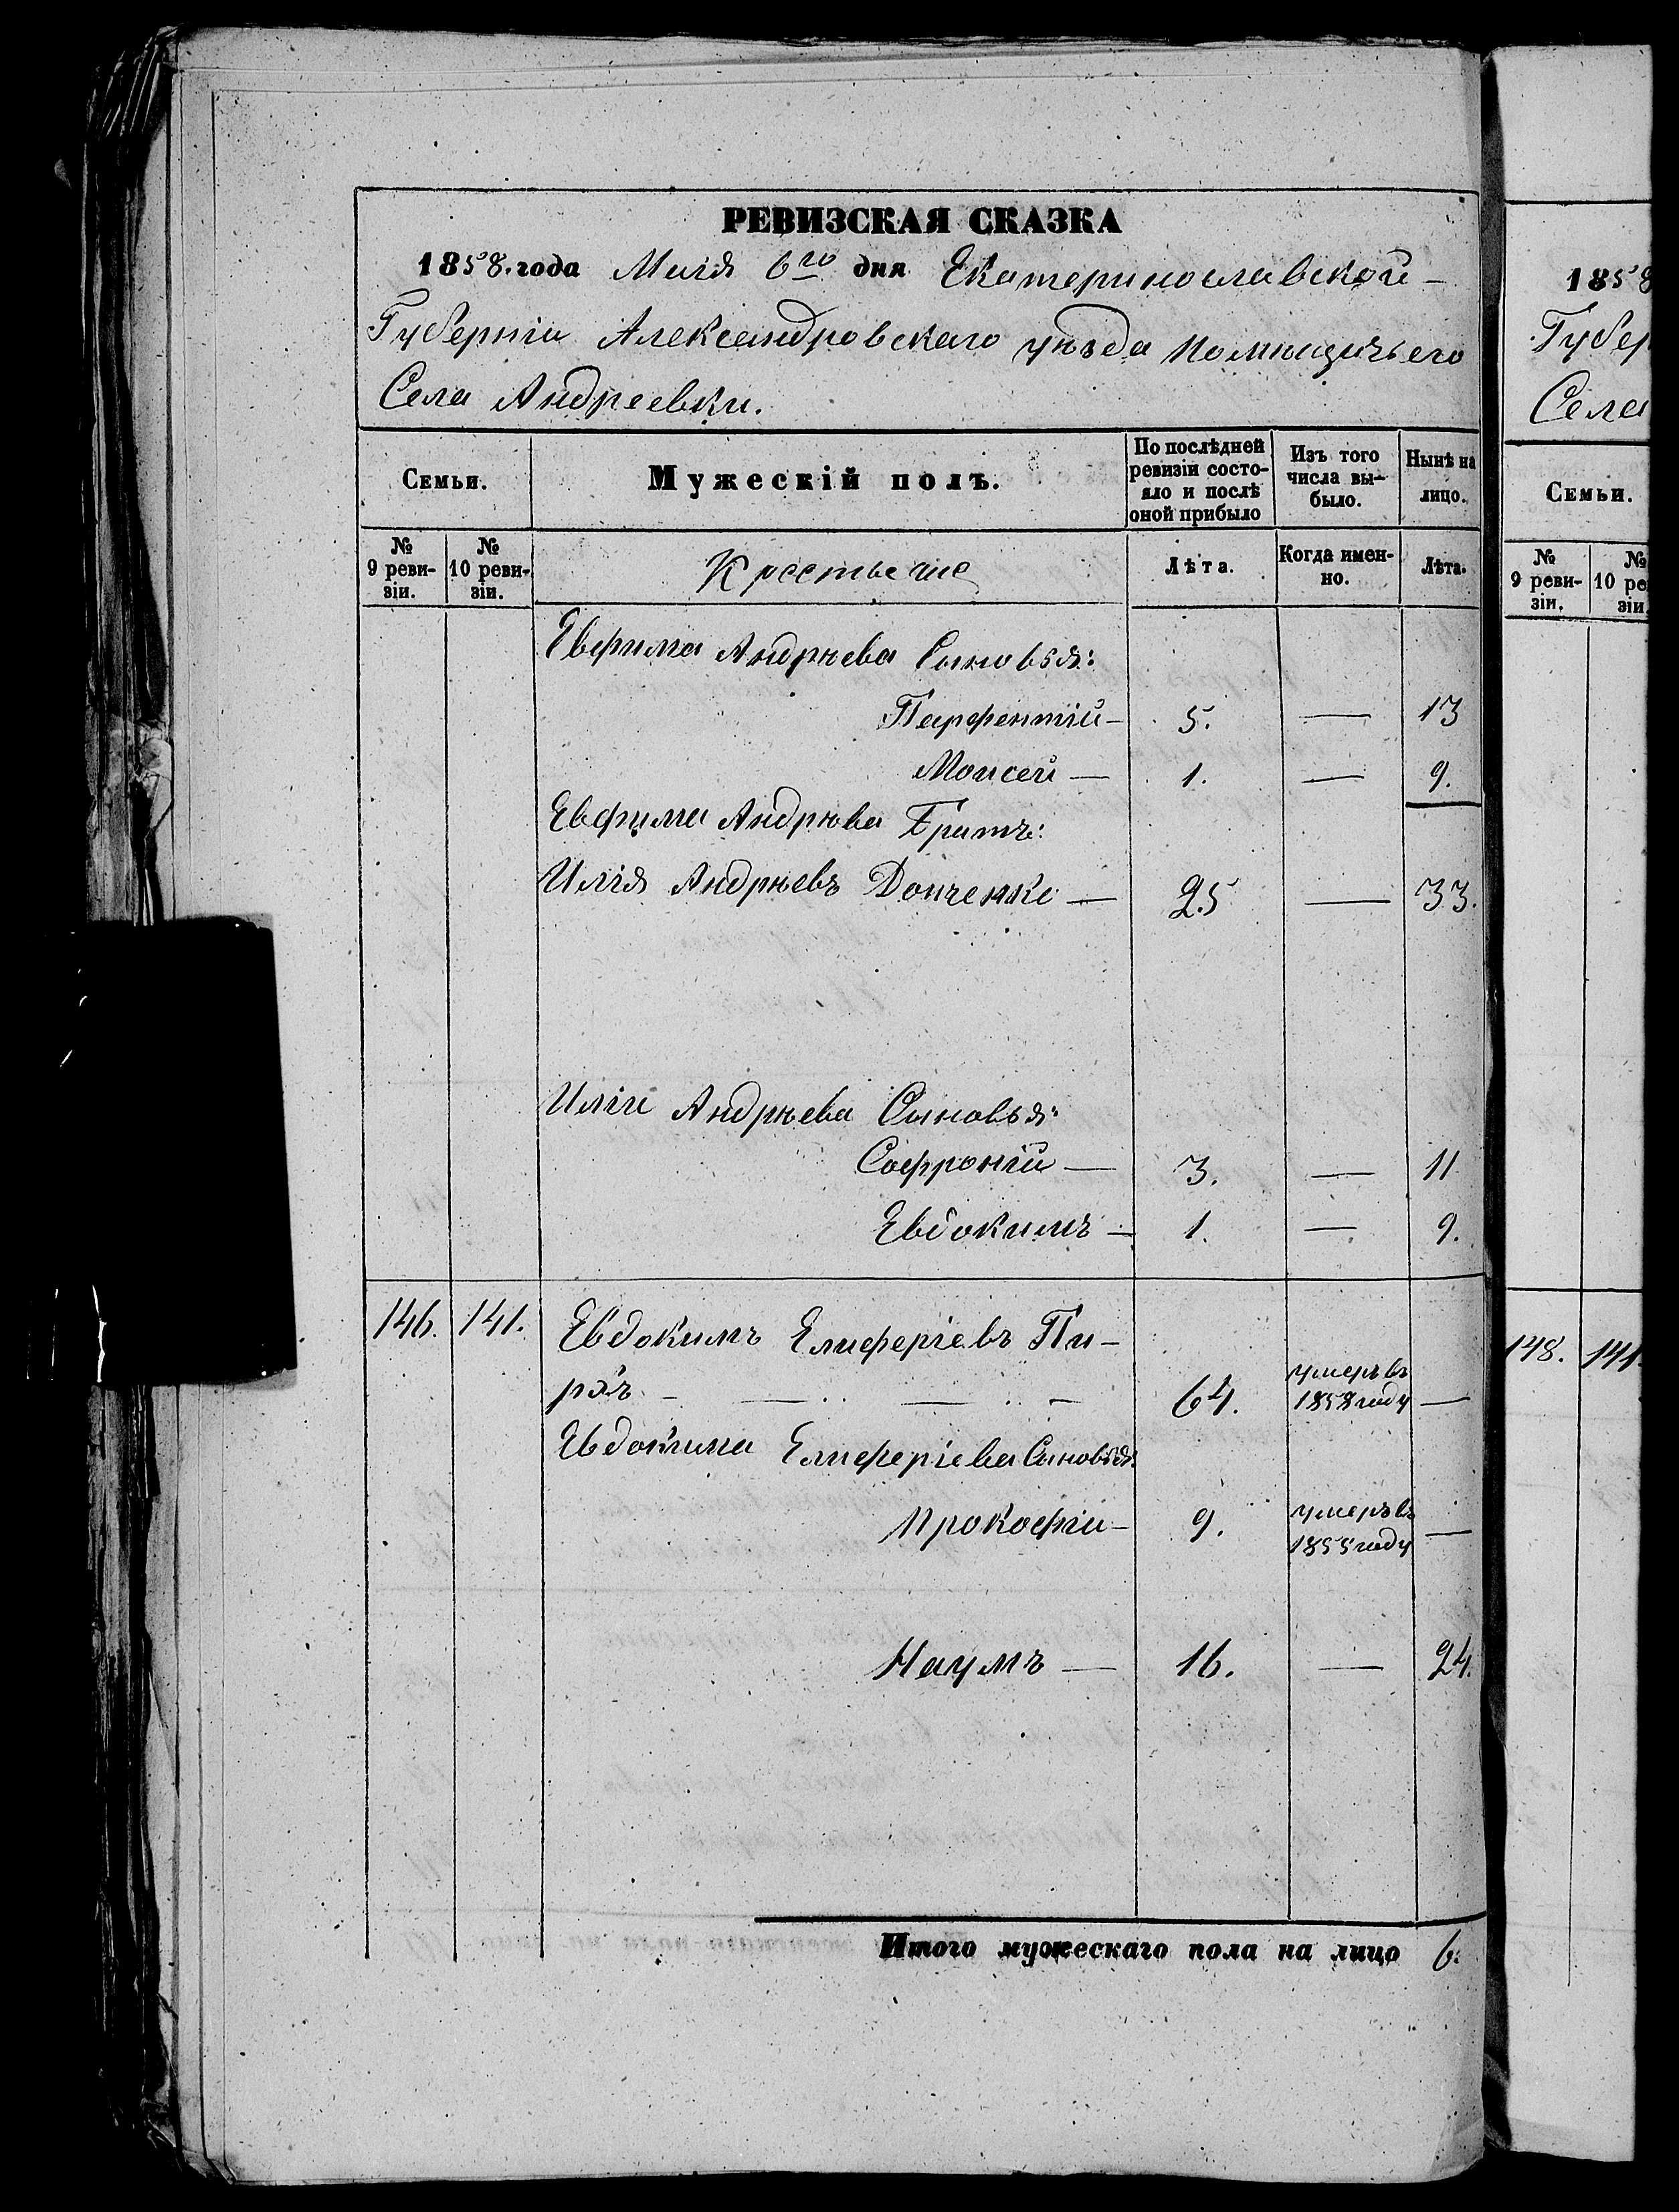 РЕВИЗСКАЯ СКАЗКА
1858. года Маія 6го дня Екатеринославской
Губерніи Александровскаго уѣзда помѣщичьего
Села Андреевки.
Семьи. Мужескій полъ. По послѣдней ревизіи состояло и послѣ оной прибыло Изъ того числа вы-было. Нынѣ на лицо.
№ 9 реви-зіи. № 10 реви-зіи. Крестьяне Лѣта. Когда имен-но. Лѣта.
Евфима Андрѣева Сыновья:
Парфентій — 5. — 13
Моисей — 1. — 9.
Евфима Андрѣва Братъ:
Илія Андрѣевъ Донченко — 25 — 33.
Иліи Андрѣева Сыновья:
Софроній — 3. — 11
Евдокимъ — 1. — 9.
146. 141. Евдокимъ Елиферіевъ Пи-
64. умеръ въ 1858 году —
Евдокима Елиферіева Сыновья:
Прокофій — 9. умеръ въ 1855 году —
Наумъ — 16. — 24.
Итого мужескаго пола на лицо 6.
1858
Губер
Села
Семьи.
№ 9 реви-зіи. № 10 ре зіи.
148. 141.